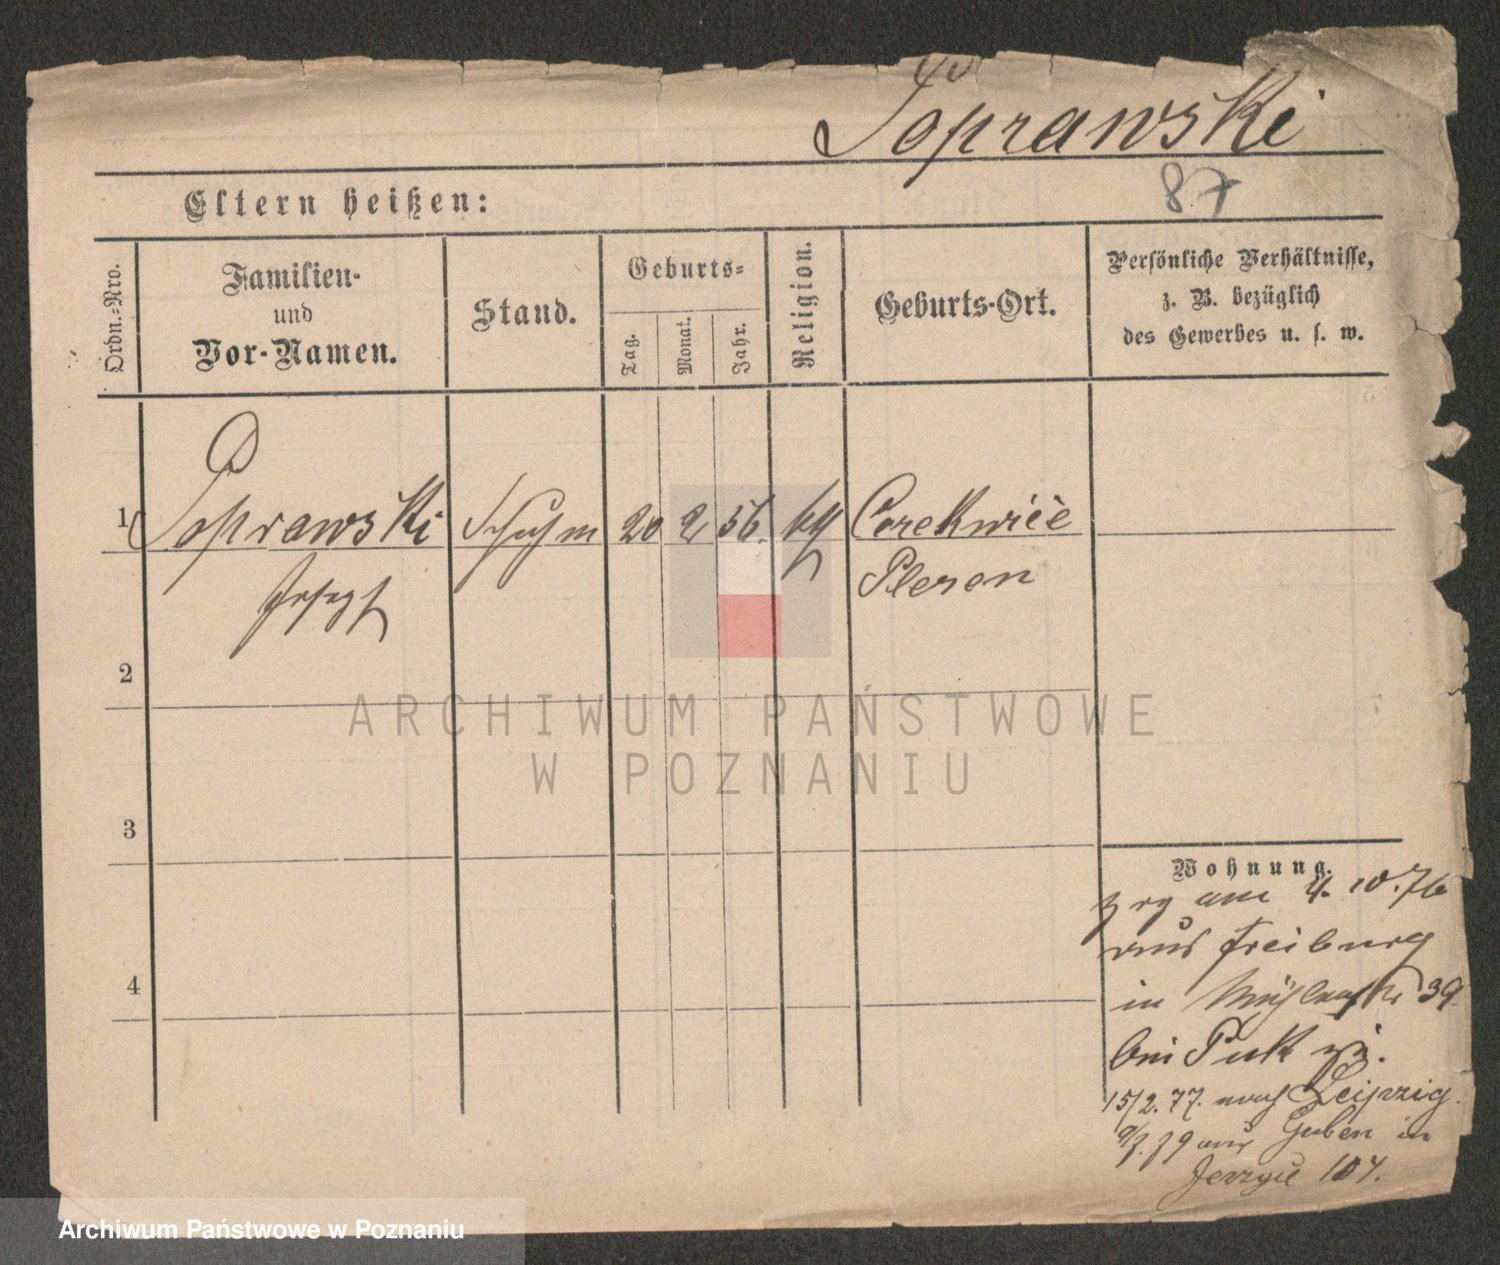 Poprawski
87
Eltern heißen:
Ordn.-Nro.
Familien-
und
Vor-Namen.
Stand.
Geburts-
Tag.
Monat.
Jahr.
Religion.
Geburts-Ort.
Persönliche Verhältnisse,
z. B. bezüglich
des Gewerbes u. s. w.
1 Poprawski Schuhm 20 2 56. kth Cerekwice
Joseph Pleren
2
3
4
Wohnung.
zog am 4. 10. 76
aus Freiburg
in Mühlenstr 39.
bei Puk
15/2. 77. nach Leipzig.
9/3. 79 aus Guben in
Jerzyce 104.
ARCHIWUM PAŃSTWOWE
W POZNANIU
Archiwum Państwowe w Poznaniu